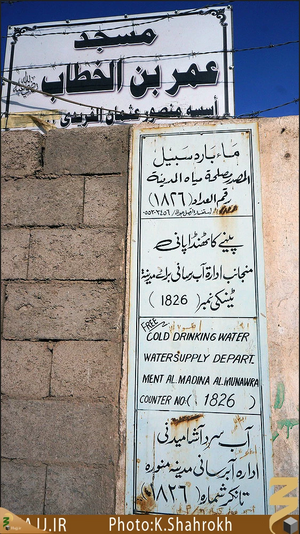 مسجد
عمر بن الخطاب
أسسه منصور عثمان الفريدي
ماء بارد سبيل
المصدر مصلحة مياه المدينة
رقم العداد (١٨٢٦)
پینے کا ٹھنڈا پانی
منجانب ادارہ آب رسانی برائے مدینہ
ٹینکی نمبر (1826)
FREE
COLD DRINKING WATER
WATER SUPPLY DEPART.
MENT AL.MADINA AL.MUNAWRA
COUNTER NO.( 1826 )
آب سرد آشامیدنی
اداره آبرسانی مدینه منوره
تانکر شماره (١٨٢٦)
.IR
Photo:K.Shahrokh